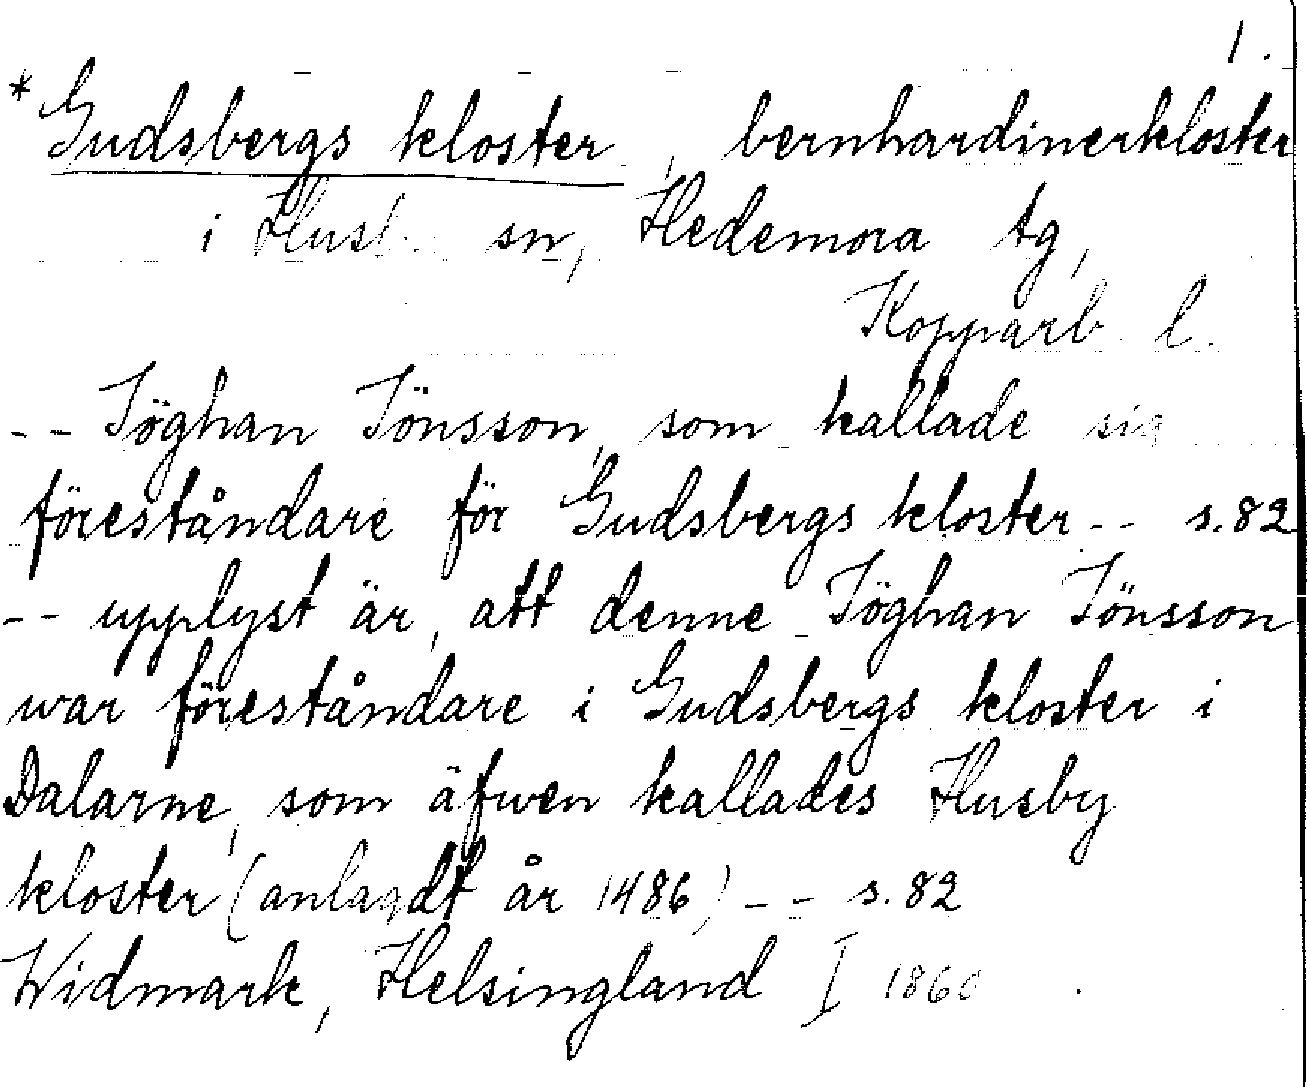 1.
*Gudsbergs kloster, bernhardinerkloster
i sn, Hedemora tg,
Kopparb. l.
-- Jöghan Jönsson, som kallade sig
föreståndare för Gudsbergs kloster -- s. 82
-- upplyst är, att denne Jöghan Jönsson
war föreståndare i Gudsbergs kloster i
Dalarne, som äfwen kallades Husby
kloster (anlagdt år 1486) -- s. 82
Widmark, Helsingland I 1860